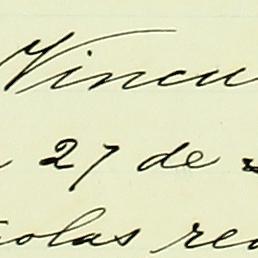 Vincu
27 de
colas rec